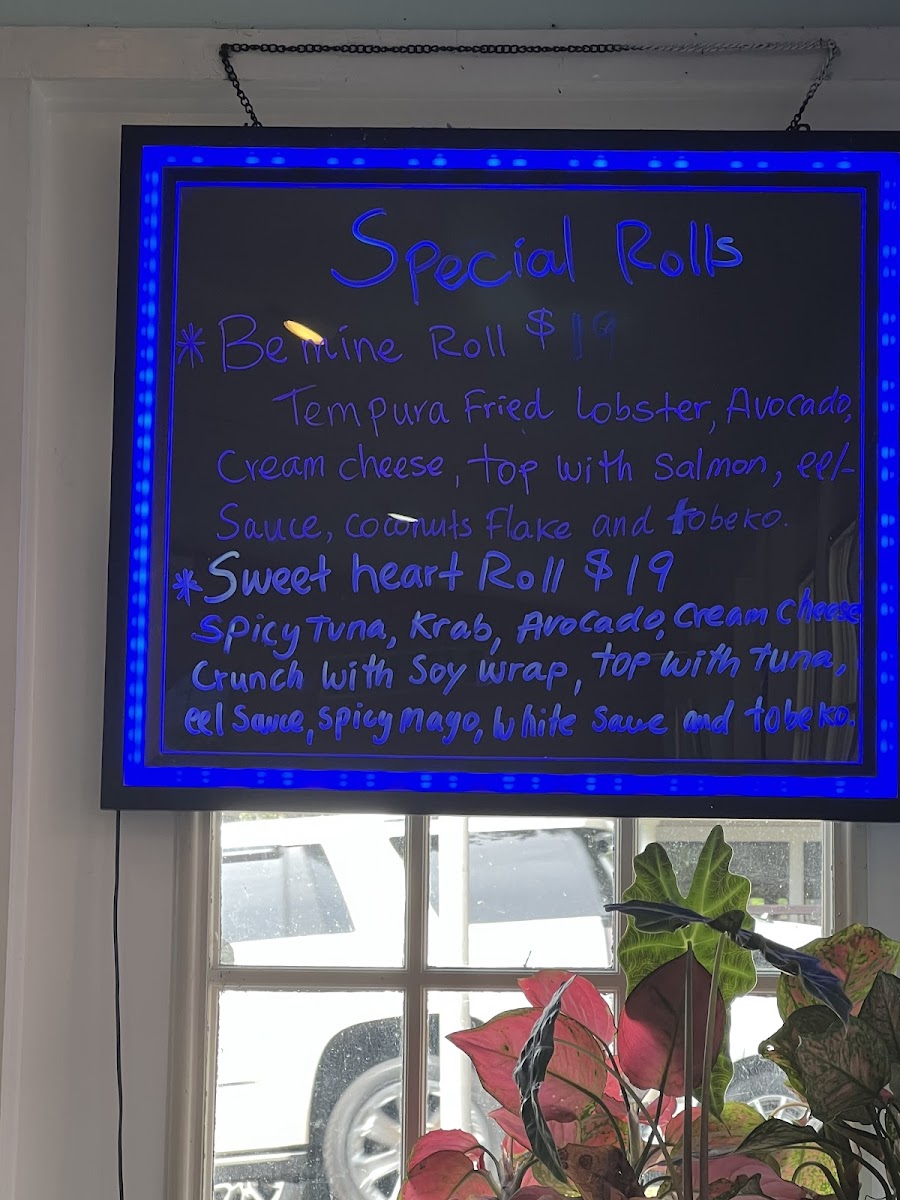 Special Rolls
* Be mine Roll $19
Tempura Fried Lobster, Avocado,
Cream cheese, top with Salmon, eel-
Sauce, coconuts Flake and tobeko.
* Sweet heart Roll $19
Spicy Tuna, Krab, Avocado, Cream Cheese
Crunch with Soy wrap, top with Tuna,
eel Sauce, spicy mayo, white saue and tobeko.